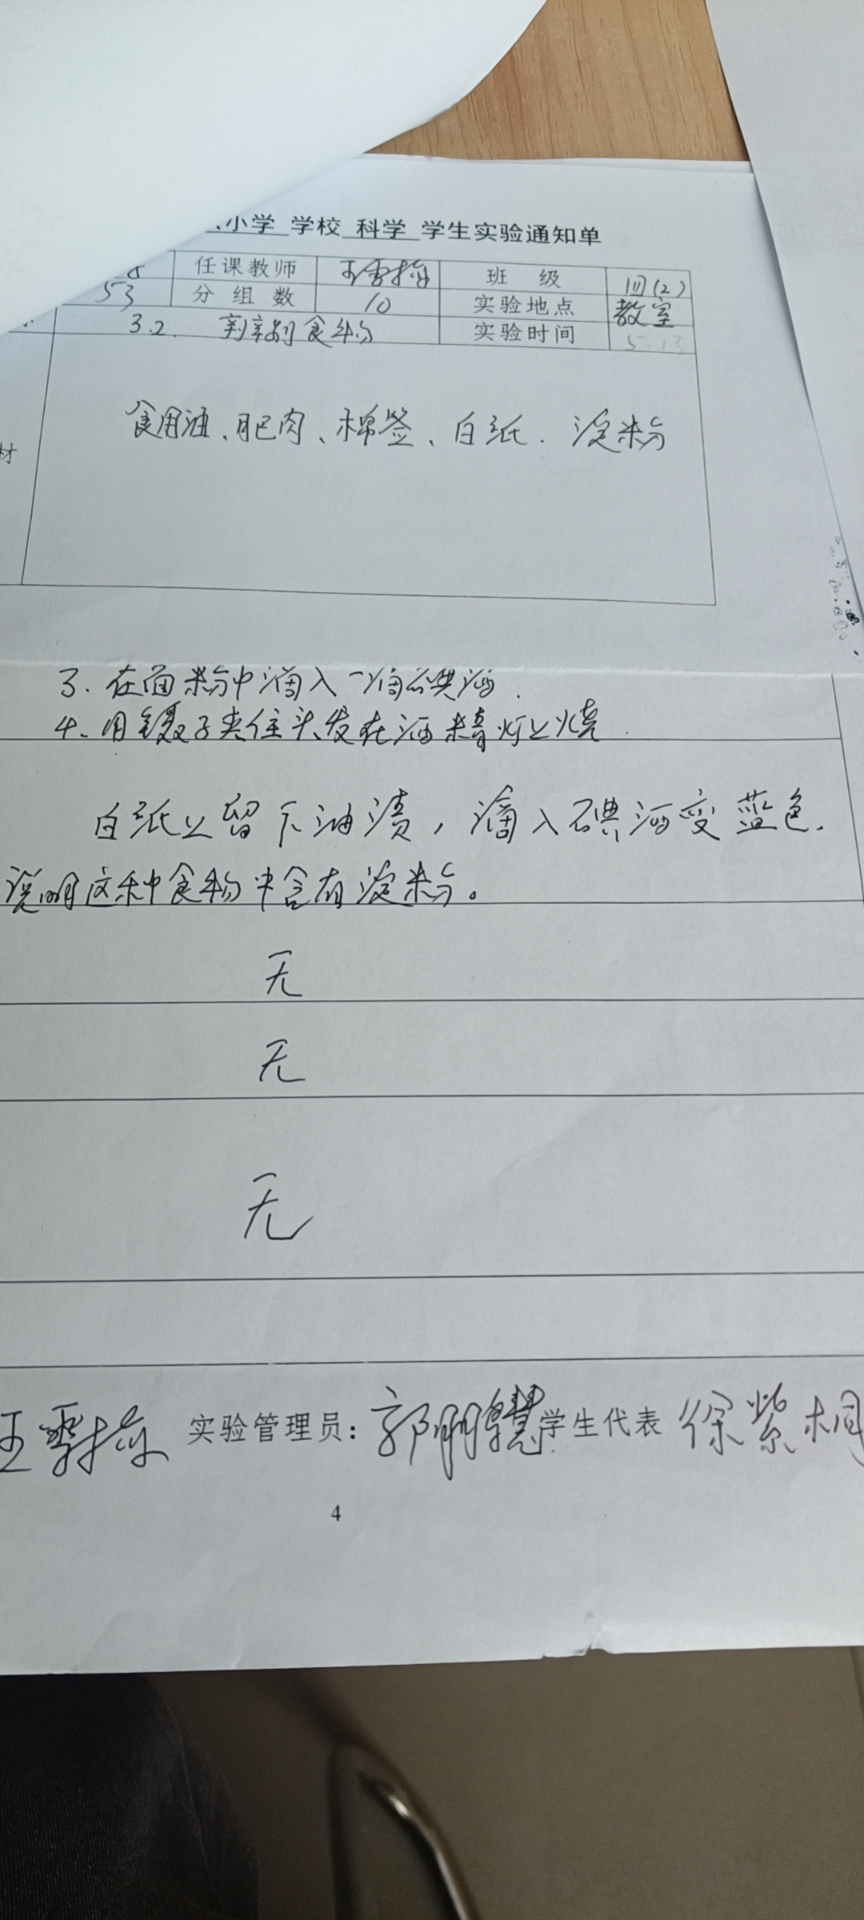 小学 学校 科学 学生实验通知单
8 任课教师 王雪梅 班 级 四(2)
53 分 组 数 10 实验地点 教室
3.2. 辨别食物 实验时间 5.13
材 食用油、肥肉、棉签、白纸.淀粉
3. 在面粉中滴入一滴碘酒.
4. 用镊子夹住头发在酒精灯上烧.
白纸上留下油渍,滴入碘酒变蓝色.
说明这种食物中含有淀粉。
无
无
无
王雪梅 实验管理员: 学生代表 徐紫桐
4